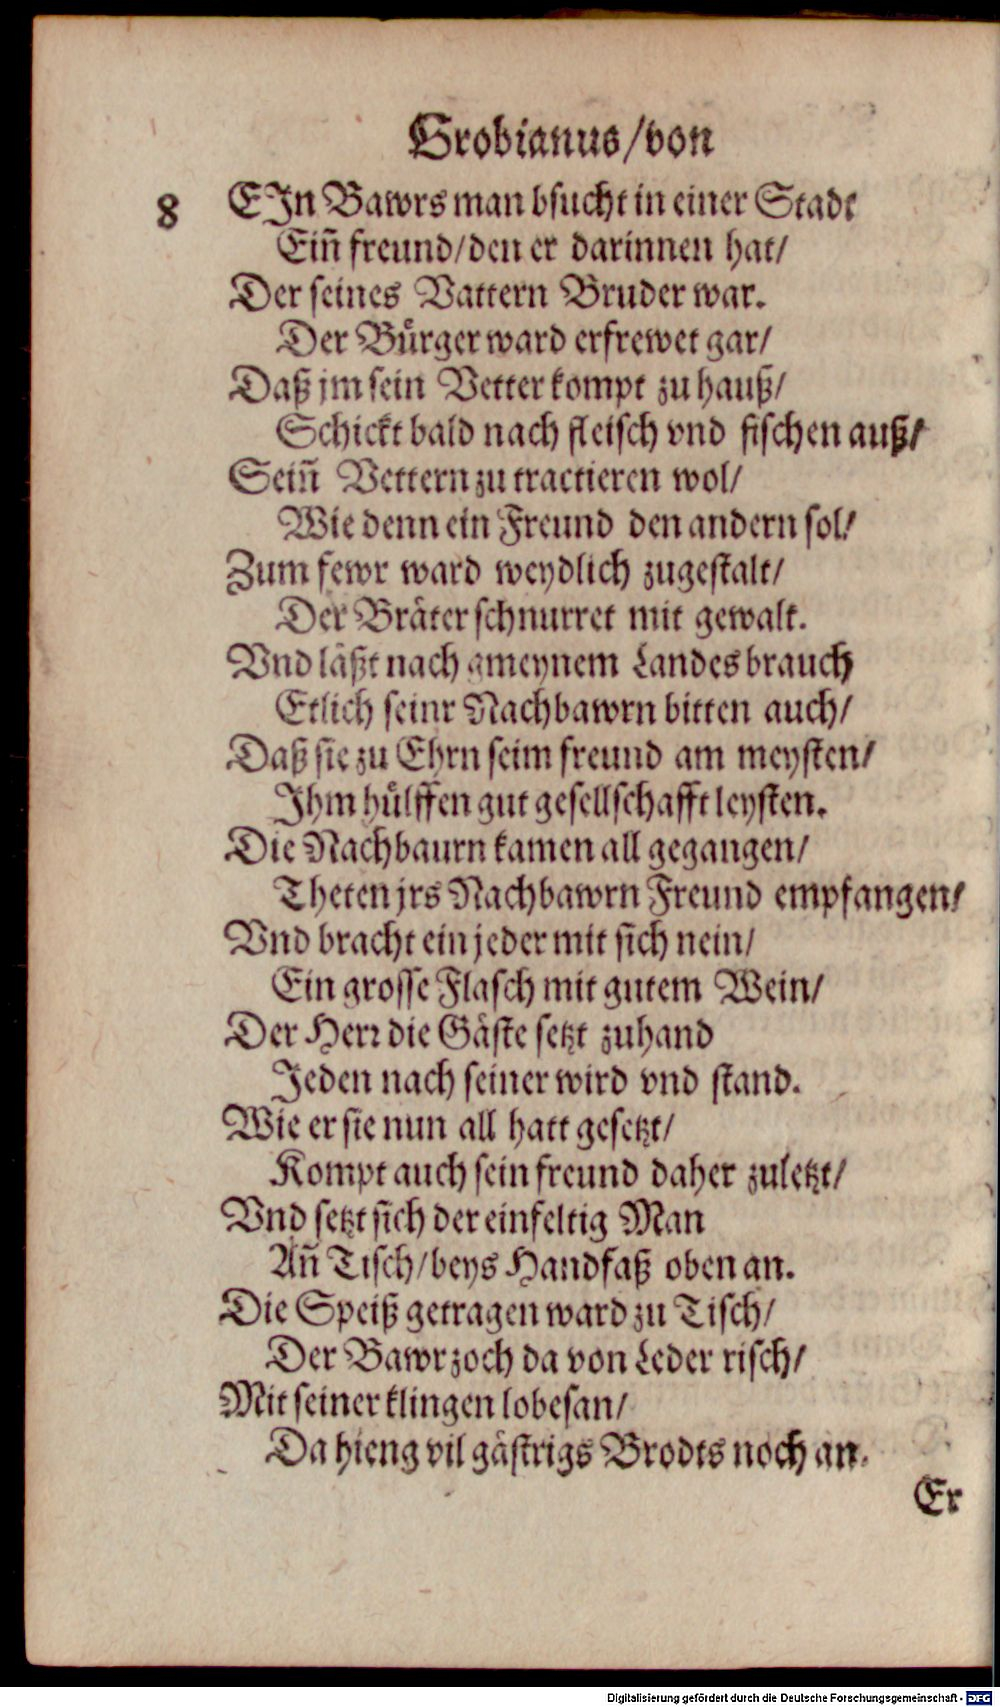 Grobianus/von
8 EJn Bawrsman bsucht in einer Stadt
Eiñ freund/den er darinnen hat/
Der seines Vattern Bruder war.
Der Bůrger ward erfrewet gar/
Daß jm sein Vetter kompt zu hauß/
Schickt bald nach fleisch vnd fischen auß/
Seiñ Vettern zu tractieren wol/
Wie denn ein Freund den andern sol/
Zum fewr ward weydlich zugestalt/
Der Bräter schnurret mit gewalt.
Vnd läßt nach gmeynem Landesbrauch
Etlich seinr Nachbawrn bitten auch/
Daß sie zu Ehrn seim freund am meysten/
Jhm hůlffen gut gesellschafft leysten.
Die Nachbaurn kamen all gegangen/
Theten jrs Nachbawrn Freund empfangen/
Vnd bracht ein jeder mit sich nein/
Ein grosse Flasch mit gutem Wein/
Der Herr die Gäste setzt zuhand
Jeden nach seiner wird vnd stand.
Wie er sie nun all hatt gesetzt/
Kompt auch sein freund daher zuletzt/
Vnd setzt sich der einfeltig Man
Añ Tisch/beys Handfaß oben an.
Die Speiß getragen ward zu Tisch/
Der Bawr zoch da von Leder risch/
Mit seiner klingen lobesan/
Da hieng vil gästrigs Brodts noch an.
Er
Digitalisierung gefördert durch die Deutsche Forschungsgemeinschaft - DFG